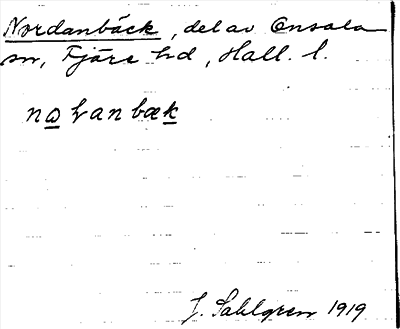 Nordanbäck, del av Onsala
sn, Fjäre hd, Hall. l.
J. Sahlgren 1919